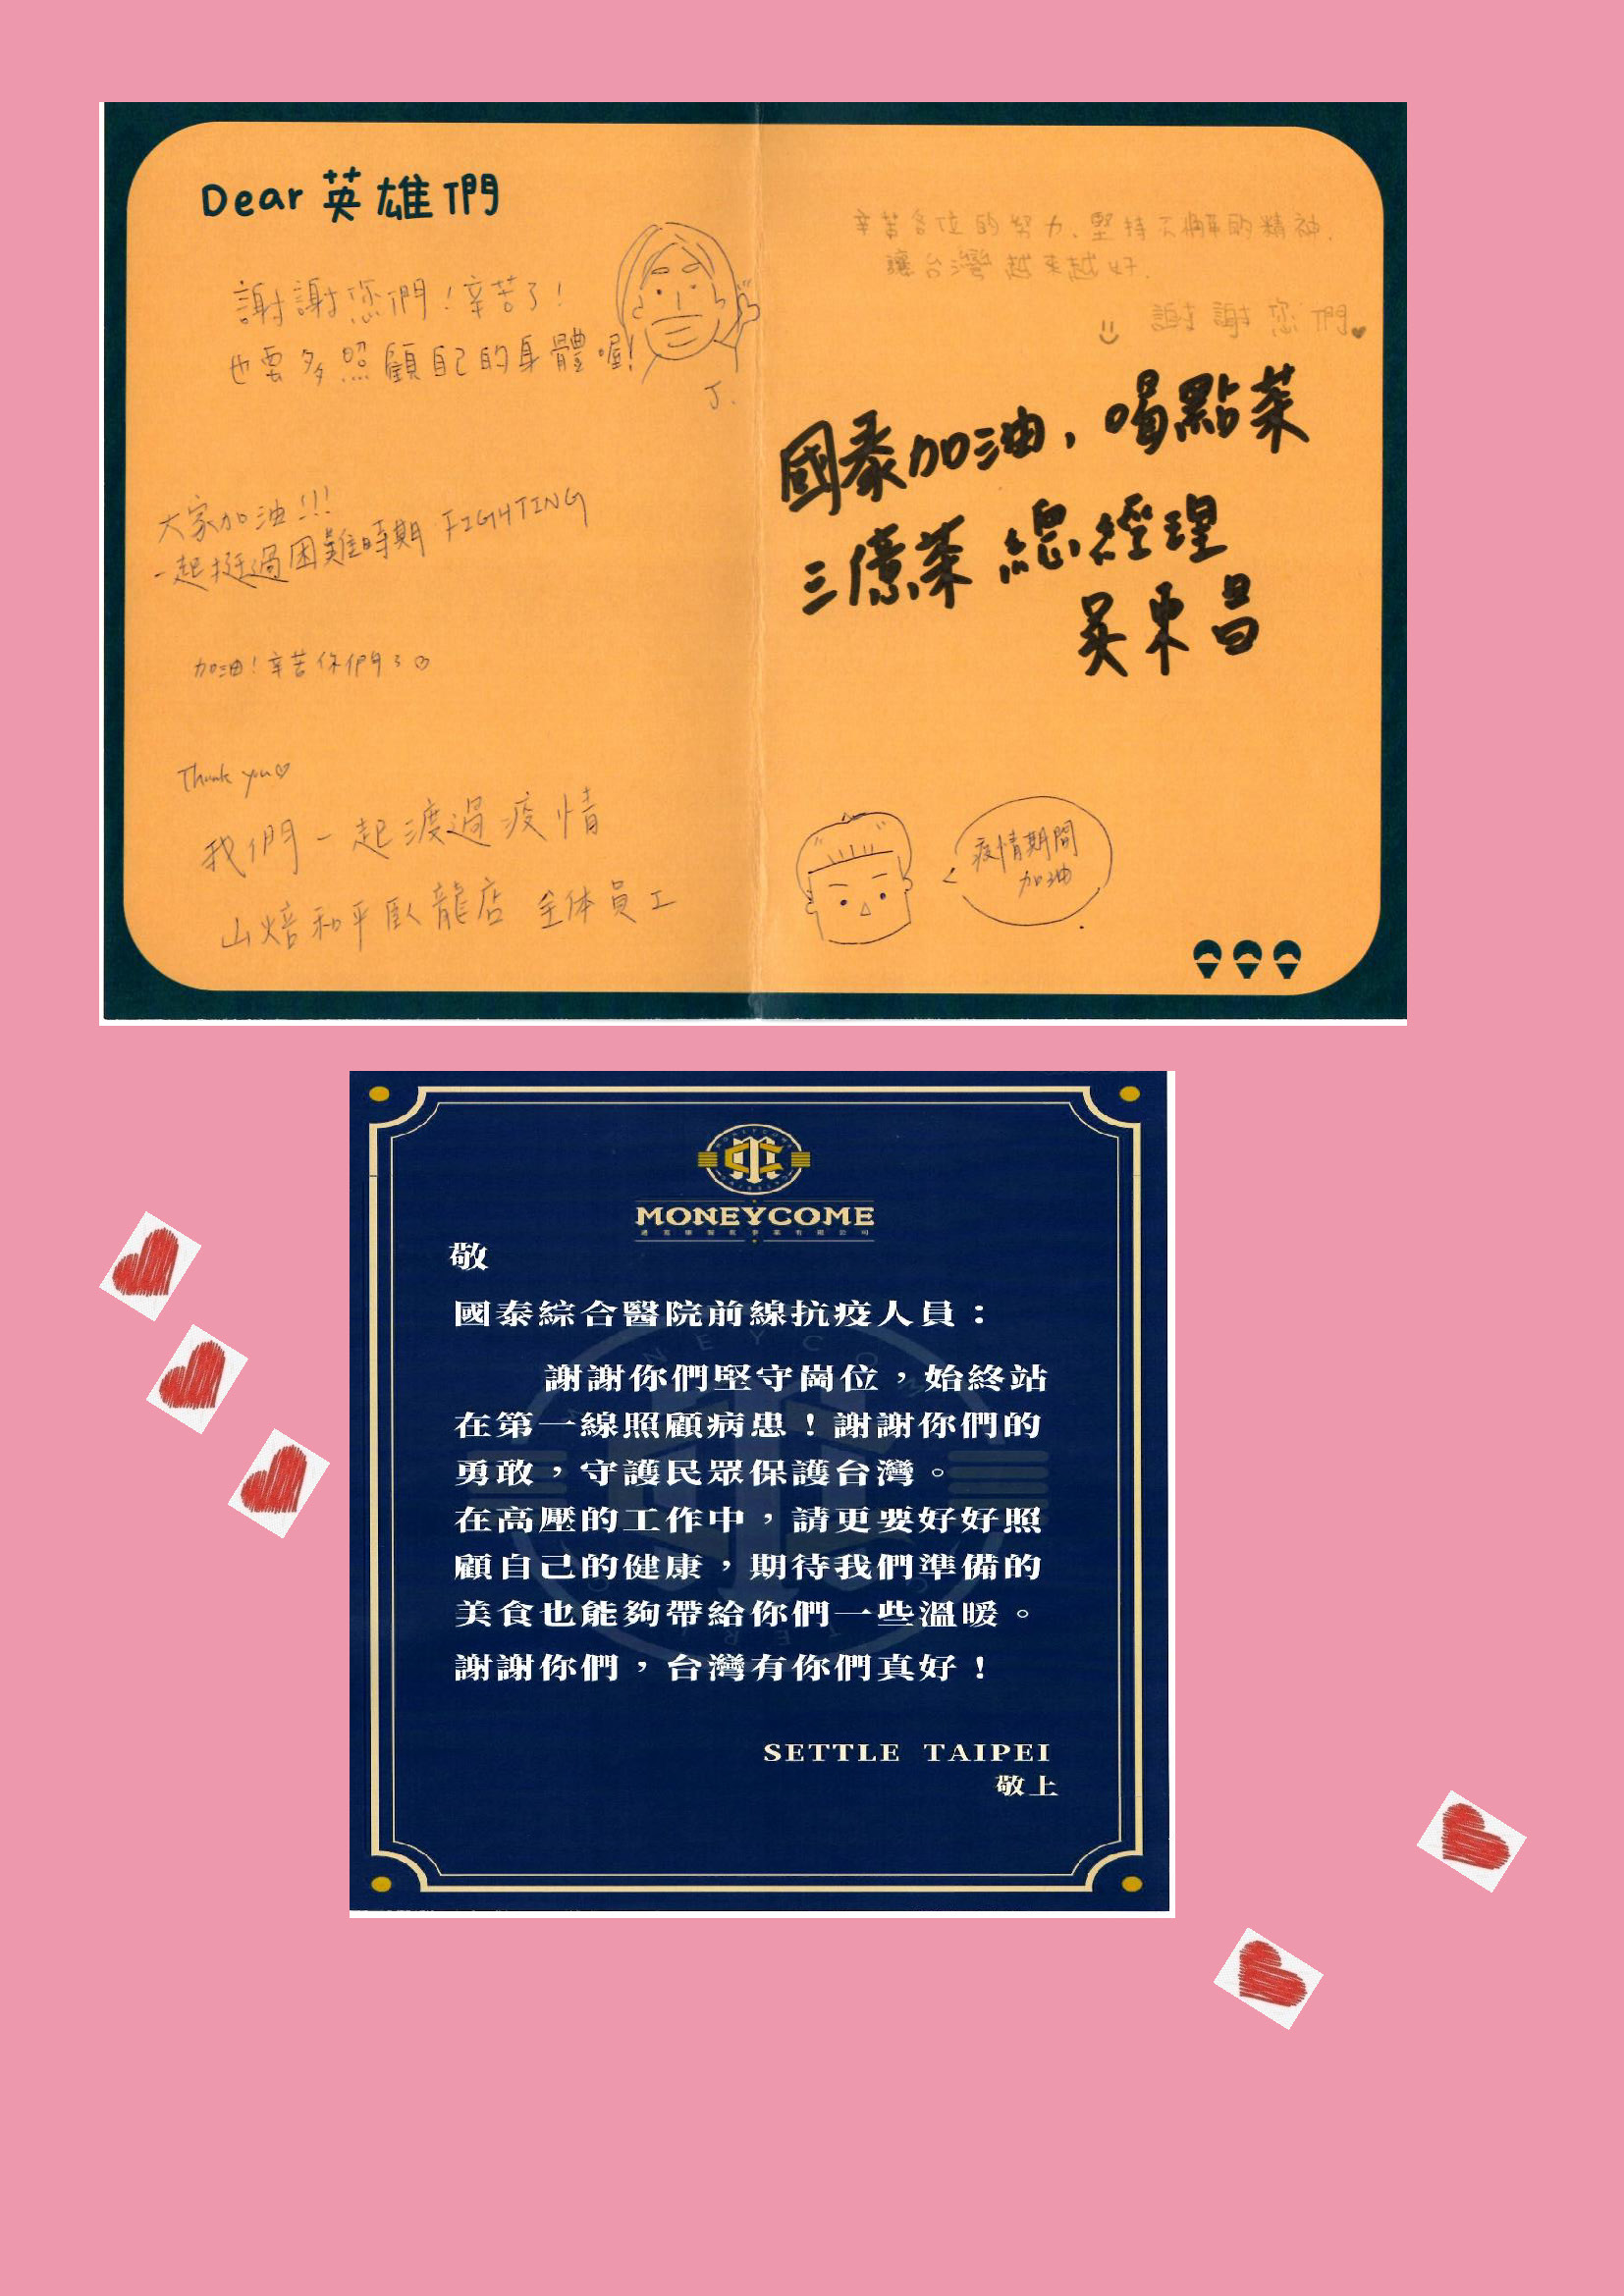 Dear 英雄們
謝謝您們！辛苦了！
也要多照顧自己的身體喔！
J.
大家加油!!!
一起挺過困難時期 FIGHTING
加油！辛苦你們了♡
Thank you♡
我們一起渡過疫情
山焙和平臥龍店 全体員工
辛苦各位的努力、堅持不懈的精神.
讓台灣越來越好.
謝謝您們
國泰加油，喝點茶
三億茶 總經理
吳東昌
疫情期間
加油
MONEYCOME
敬
國泰綜合醫院前線抗疫人員：
謝謝你們堅守崗位，始終站
在第一線照顧病患！謝謝你們的
勇敢，守護民眾保護台灣。
在高壓的工作中，請更要好好照
顧自己的健康，期待我們準備的
美食也能夠帶給你們一些溫暖。
謝謝你們，台灣有你們真好！
SETTLE TAIPEI
敬上